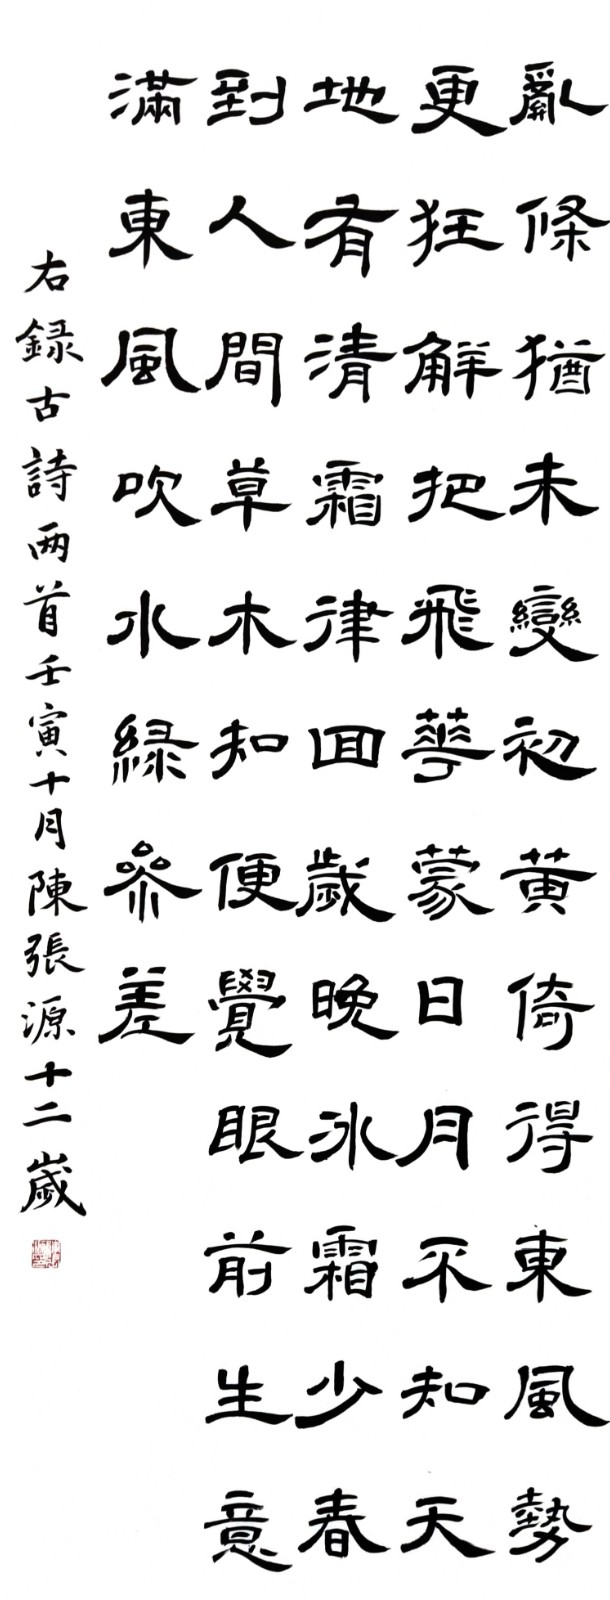 亂條猶未變初黃倚得東風勢
更狂解把飛華蒙日月不知天
地有清霜律回歲晚冰霜少春
到人間草木知便覺眼前生意
滿東風吹水綠參差
右録古詩两首壬寅十月陳張源十二歲